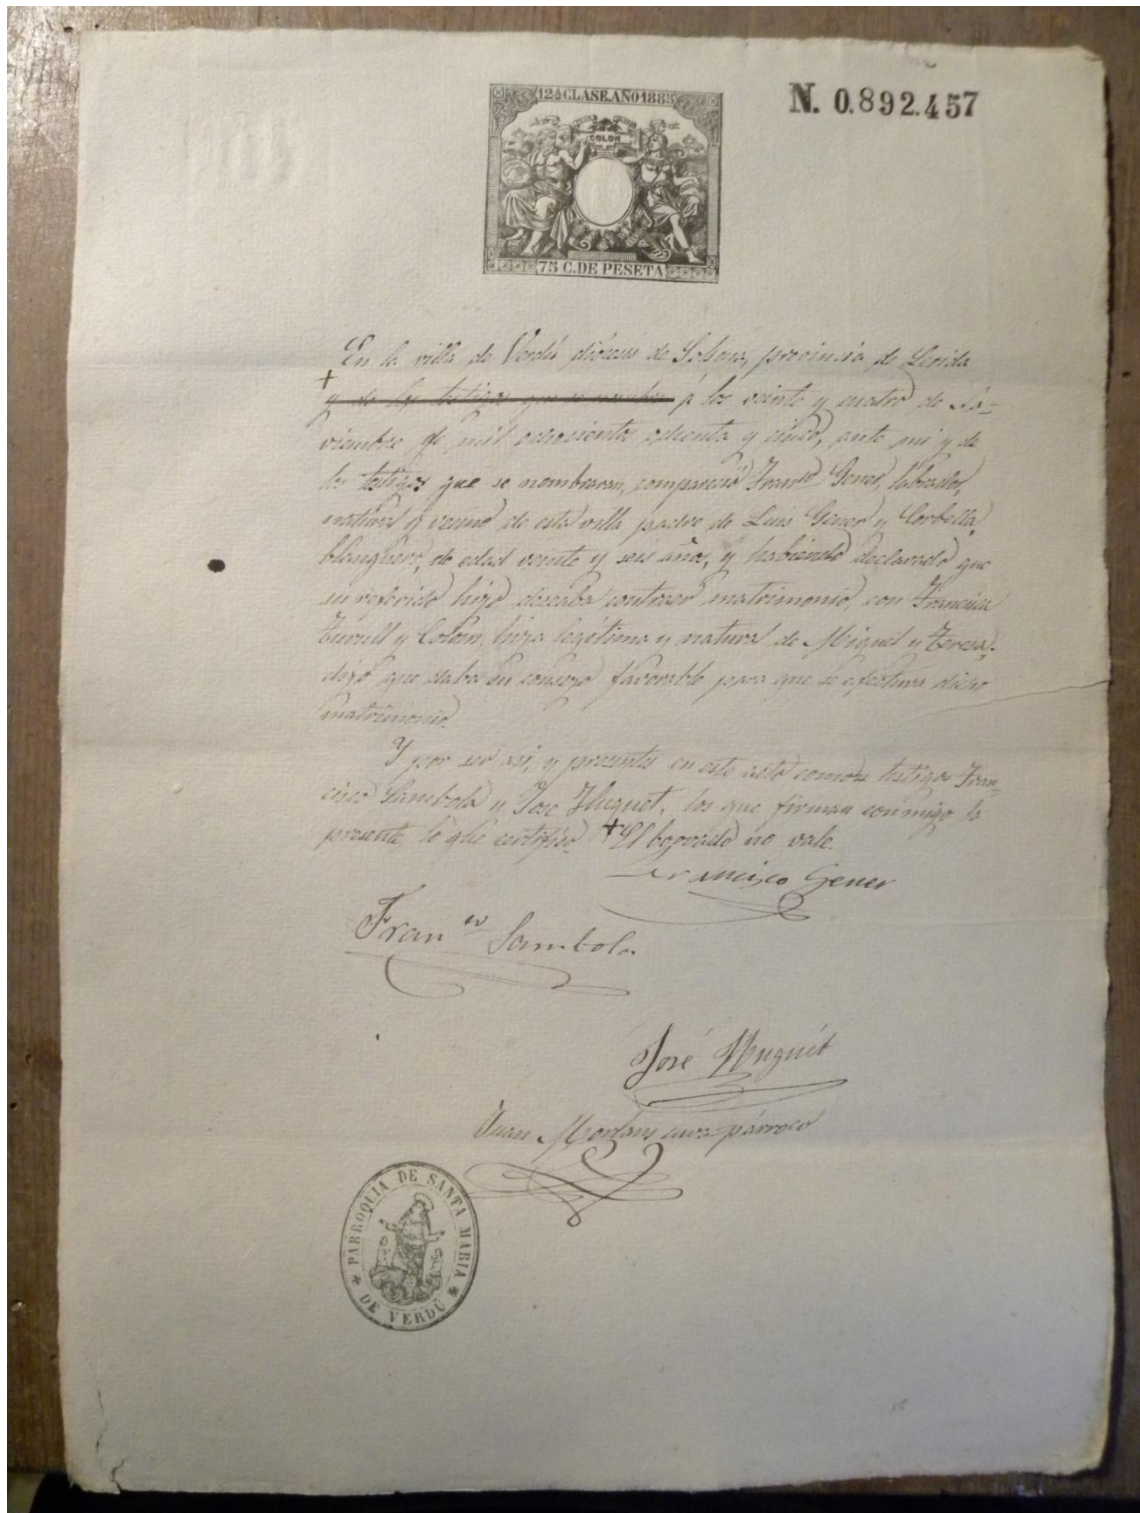 12ª CLASE. AÑO 1885
N. 0.892.457
COLON
75 C. DE PESETA
En la villa de Verdú diócesis de Solsona, provincia de Lerida
+
y de los testigos que se nombra á los veinte y cuatro de No=
viembre de mil ochocientos ochenta y cinco, ante mi y de
los testigos que se nombraran, compareció Franco Gener, labrador,
natural y vecino de esta villa padre de Luis Gener y Corbella,
blanquero, de edad veinte y seis años, y habiendo declarado que
su referido hijo deseaba contraer matrimonio, con Francisca
y Colom, hija legítima y natural de Miguel y Teresa,
dijo que daba su consejo favorable para que se efectura dicho
matrimonio.
Y por ser asi, y presentes en este acto como testigos Fran=
cisco Sambola y José Huguet, los que firman conmigo la
presente lo que certifico. + El borrado no vale.
Francisco Gener
Franco Sambola
José Huguét
Juan cura párroco
PARROQUIA DE SANTA MARIA
DE VERDÚ